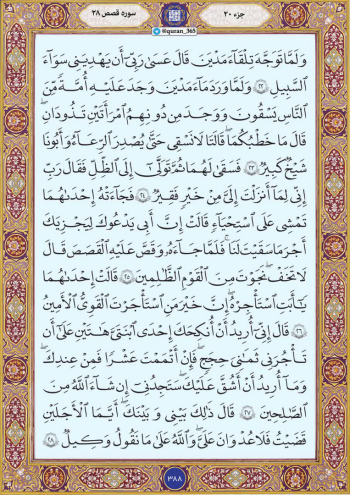 جزء ۲۰
سوره قصص ۲۸
@quran_365
وَلَمَّا تَوَجَّهَ تِلْقَآءَ مَدْيَنَ قَالَ عَسَىٰ رَبِّىٓ أَن يَهْدِيَنِى سَوَآءَ
ٱلسَّبِيلِ ٢٢ وَلَمَّا وَرَدَ مَآءَ مَدْيَنَ وَجَدَ عَلَيْهِ أُمَّةً مِّنَ
ٱلنَّاسِ يَسْقُونَ وَوَجَدَ مِن دُونِهِمُ ٱمْرَأَتَيْنِ تَذُودَانِ ۖ
قَالَ مَا خَطْبُكُمَا ۖ قَالَتَا لَا نَسْقِى حَتَّىٰ يُصْدِرَ ٱلرِّعَآءُ ۖ وَأَبُونَا
شَيْخٌ كَبِيرٌ ٢٣ فَسَقَىٰ لَهُمَا ثُمَّ تَوَلَّىٰٓ إِلَى ٱلظِّلِّ فَقَالَ رَبِّ
إِنِّى لِمَآ أَنزَلْتَ إِلَىَّ مِنْ خَيْرٍ فَقِيرٌ ٢٤ فَجَآءَتْهُ إِحْدَىٰهُمَا
تَمْشِى عَلَى ٱسْتِحْيَآءٍ قَالَتْ إِنَّ أَبِى يَدْعُوكَ لِيَجْزِيَكَ
أَجْرَ مَا سَقَيْتَ لَنَا ۚ فَلَمَّا جَآءَهُۥ وَقَصَّ عَلَيْهِ ٱلْقَصَصَ قَالَ
لَا تَخَفْ ۖ نَجَوْتَ مِنَ ٱلْقَوْمِ ٱلظَّٰلِمِينَ ٢٥ قَالَتْ إِحْدَىٰهُمَا
يَٰٓأَبَتِ ٱسْتَـْٔجِرْهُ ۖ إِنَّ خَيْرَ مَنِ ٱسْتَـْٔجَرْتَ ٱلْقَوِىُّ ٱلْأَمِينُ
٢٦ قَالَ إِنِّىٓ أُرِيدُ أَنْ أُنكِحَكَ إِحْدَى ٱبْنَتَىَّ هَٰتَيْنِ عَلَىٰٓ أَن
تَأْجُرَنِى ثَمَٰنِىَ حِجَجٍ ۖ فَإِنْ أَتْمَمْتَ عَشْرًا فَمِنْ عِندِكَ ۖ
وَمَآ أُرِيدُ أَنْ أَشُقَّ عَلَيْكَ ۚ سَتَجِدُنِىٓ إِن شَآءَ ٱللَّهُ مِنَ
ٱلصَّٰلِحِينَ ٢٧ قَالَ ذَٰلِكَ بَيْنِى وَبَيْنَكَ ۖ أَيَّمَا ٱلْأَجَلَيْنِ
قَضَيْتُ فَلَا عُدْوَٰنَ عَلَىَّ ۖ وَٱللَّهُ عَلَىٰ مَا نَقُولُ وَكِيلٌ ٢٨
۳۸۸